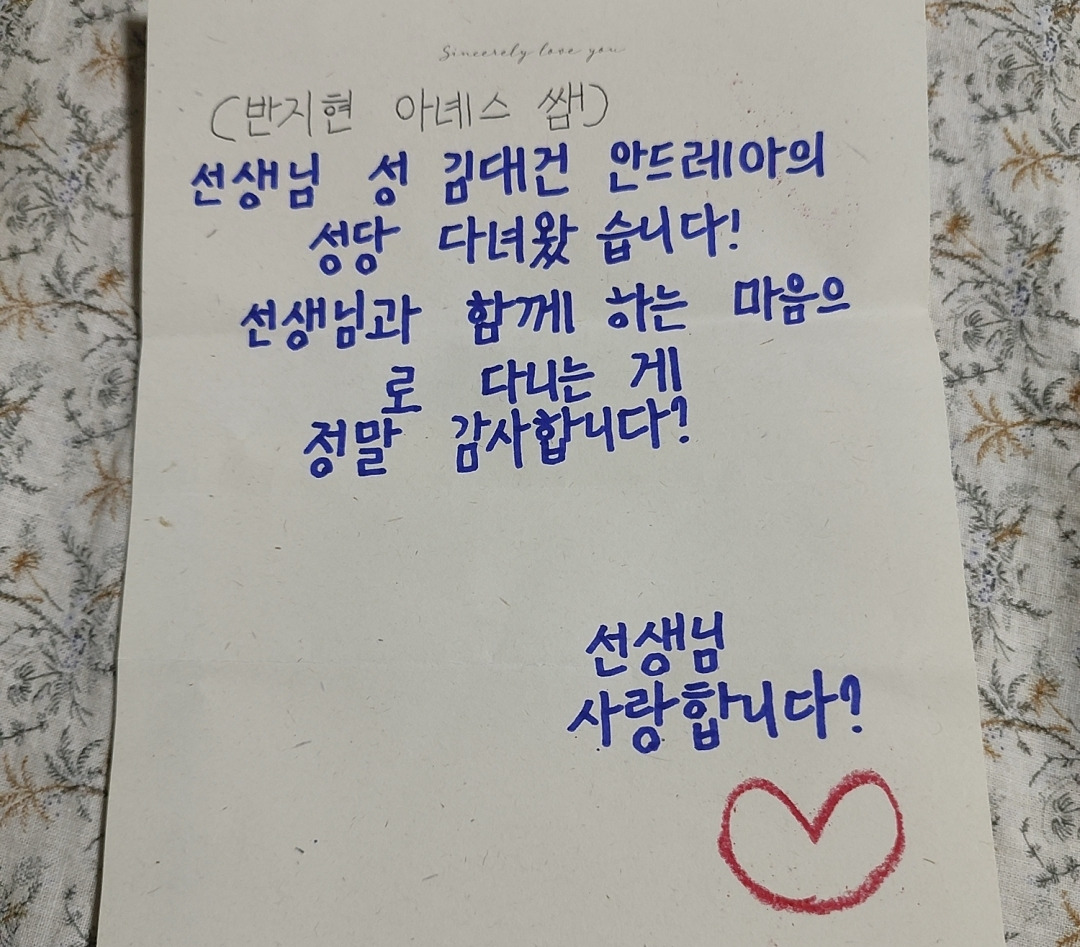 Sincerely love you
(반지현 아녜스 쌤)
선생님 성 김대건 안드레아의
성당 다녀왔 습니다!
선생님과 함께 하는 마음으
로 다니는 게
정말 감사합니다?
선생님
사랑합니다?